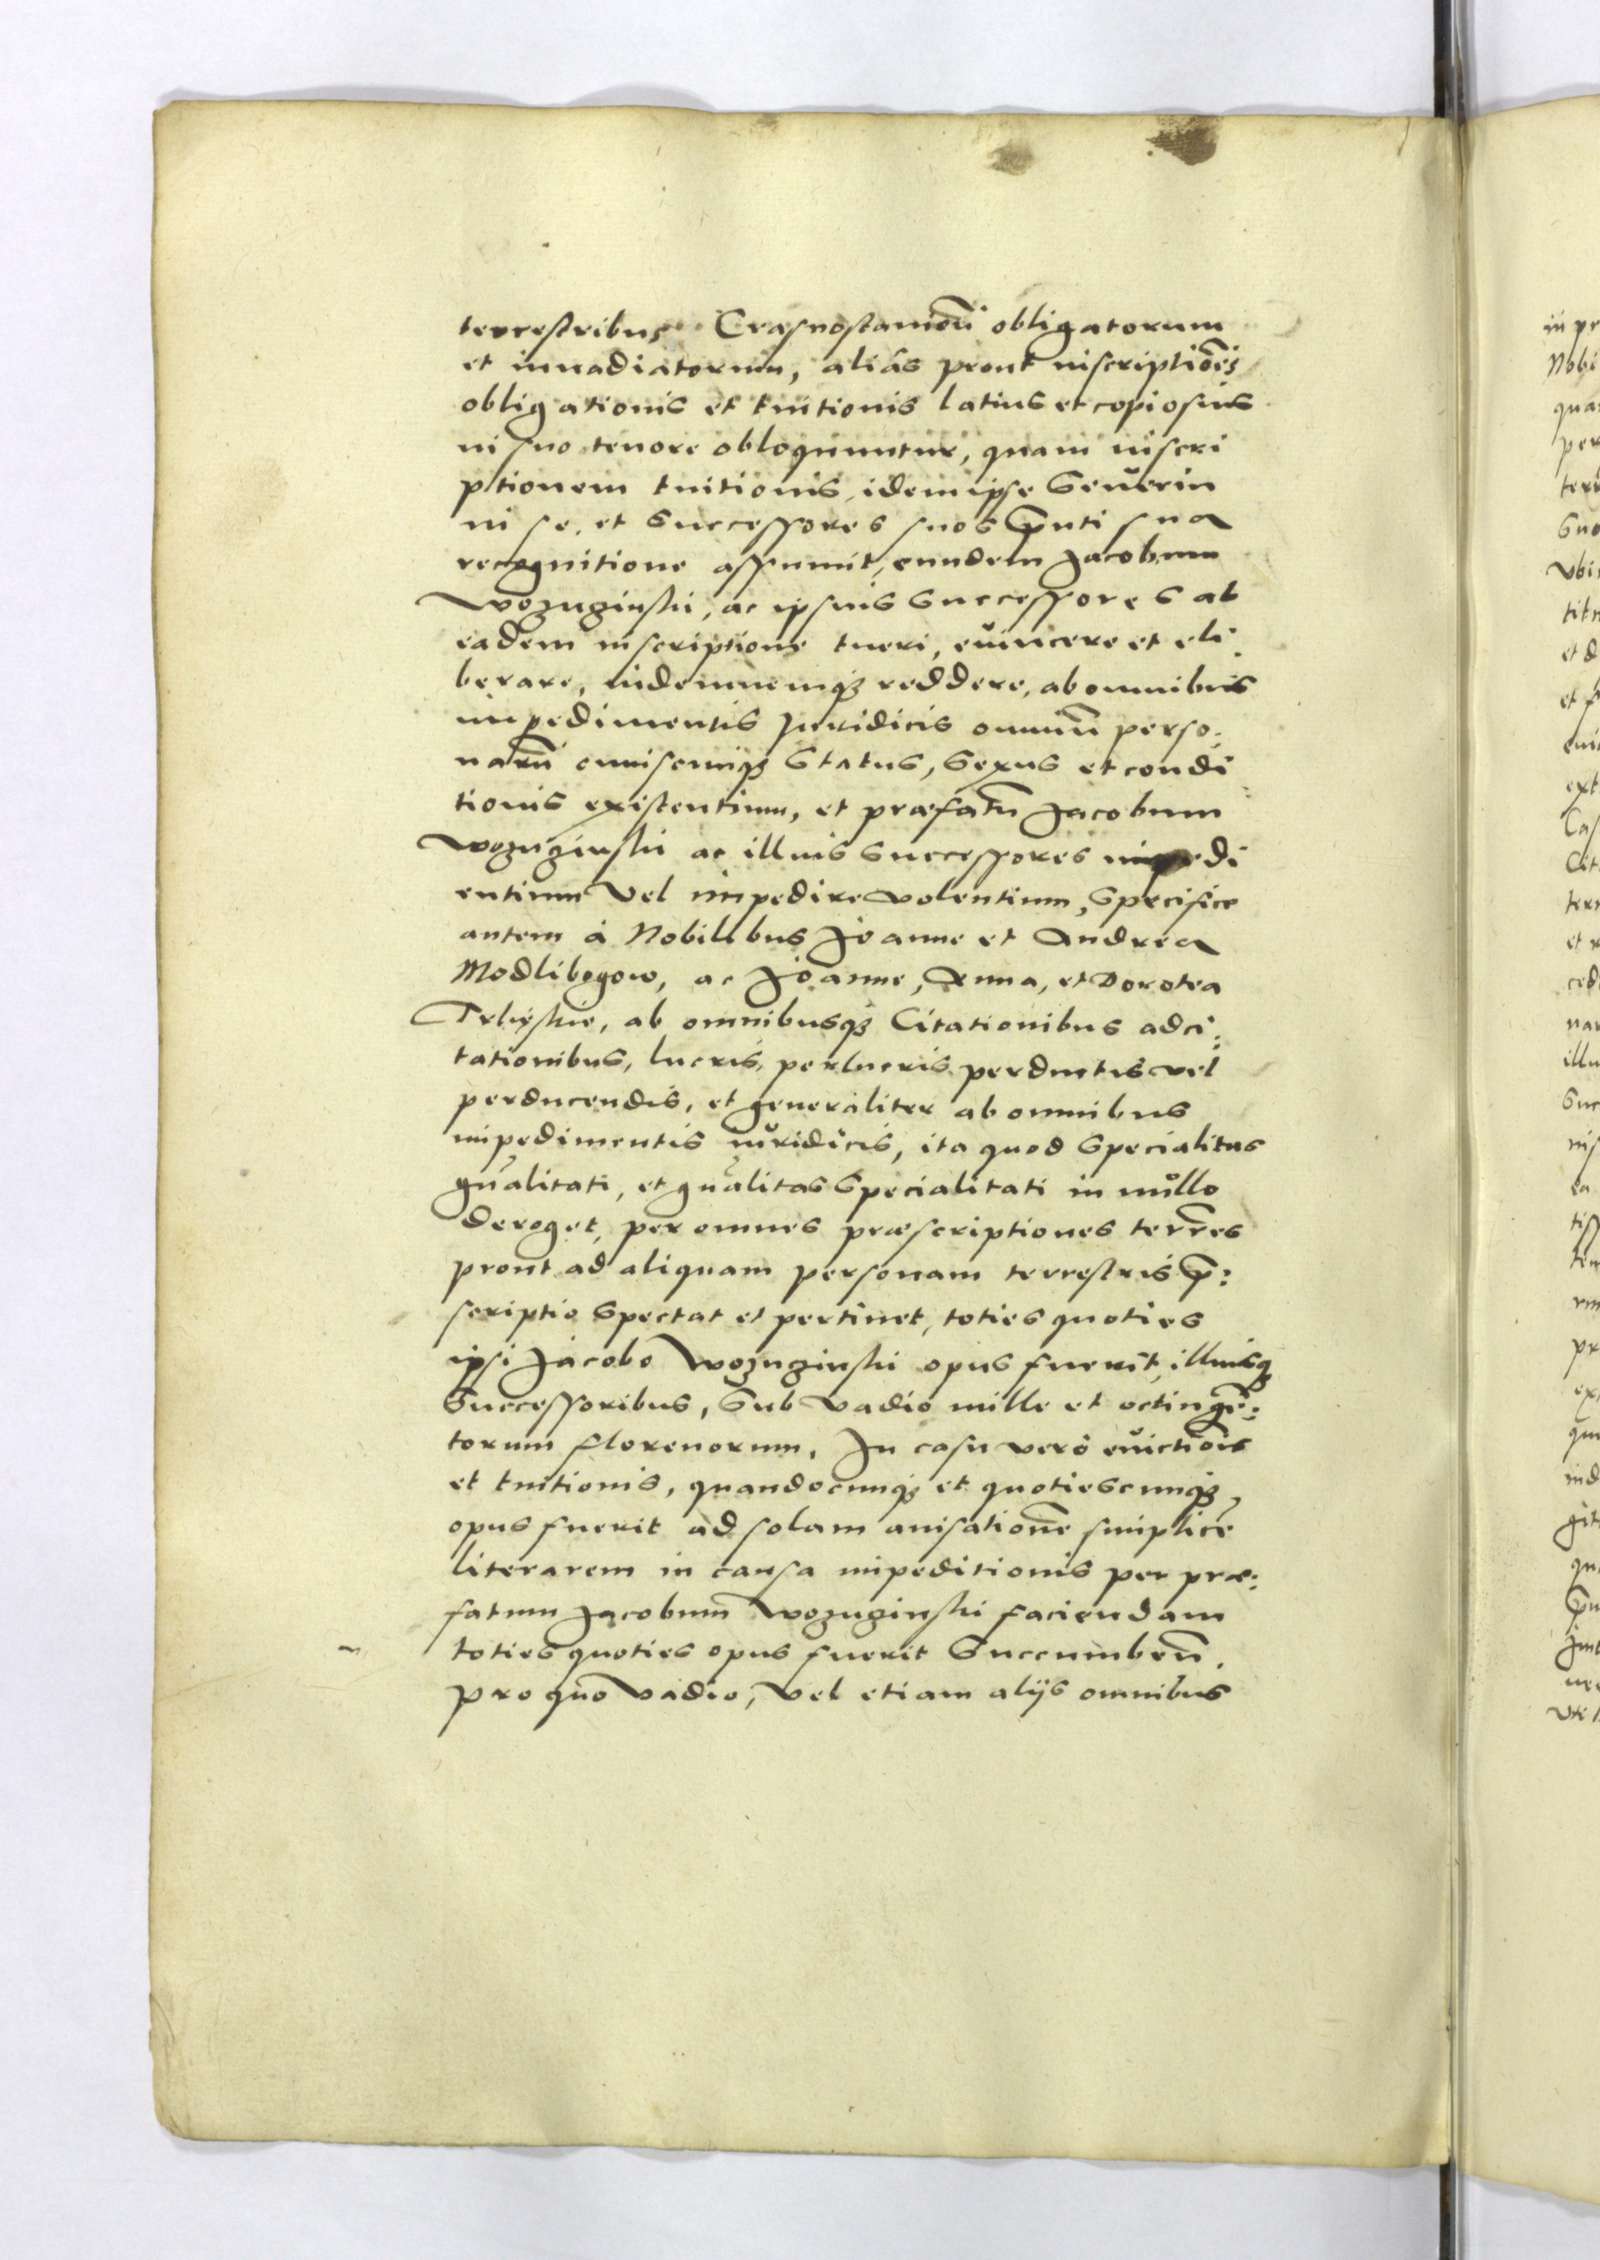 terrestribus Crasnostamoūi obligatorum
et inuadiatorum, aliàs prout inscriptiōes
obligationis et tuitionis latius et copiosius
in suo tenore obloquuntur, quam inscri
ptionem tuitionis, idem ipse Seuerin
in se, et Successores suos p̄nti sua
recognitione assumit, eundem Jacobum
Wozuginski, ac ipsius Successores ab
eadem inscriptione tueri, euincere et eli
berare, indemnemq₃ reddere, ab omnibus
impedimentis Juridicis omniū perso:
narū cuiuscunq₃ Status, Sexus et condi
tionis existentium, et præfatū Jacobum
Wozuginski ac illius Successores impedi
entium Vel impedire volentium, Specifice
autem à Nobilibus Joanne et Andrea
Modlibogow, ac Joanne, Anna, et Dorotea
ab omnibusq₃ Citationibus adci:
tationibus, lucris, perlucris perductis vel
perducendis, et generaliter ab omnibus
impedimentis iuridicis, ita quod Specialitas
gn̄alitati, et gn̄alitas Specialitati in nullo
deroget, per omnes præscriptiones terr̄es
prout ad aliquam personam terrestris p̄:
scriptio Spectat et pertinet, toties quoties
ipsi Jacobo Wozuginski opus fuerit, illiusq₃
Successoribus, Sub Vadio mille et octingē:
torum florenorum, In casu verò euictiōis
et tuitionis, quandocunq₃ et quotiescunq₃
opus fuerit ad solam auisationē simplicē
literarem in causa impeditionis per præ:
fatum Jacobum Wozuginski faciendam
toties quoties opus fuerit Succumben̄.
Pro quo Vadio, Vel etiam alijs omnibus